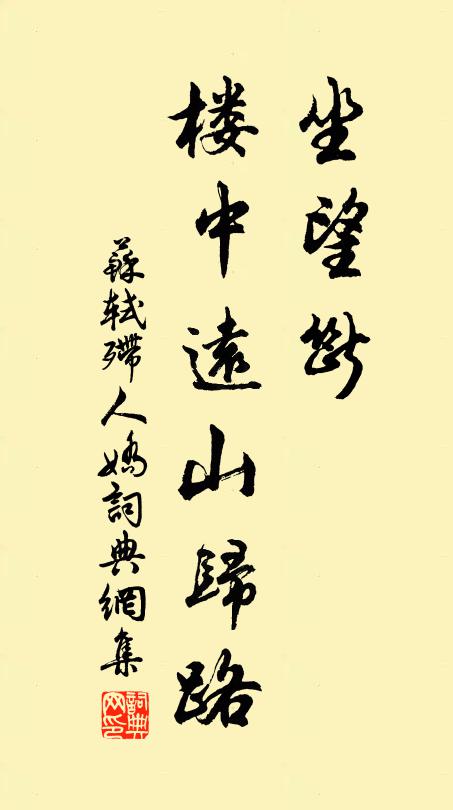 坐望斷
楼中遠山歸路
蘇軾殢人嬌詞典網集
詞典網印